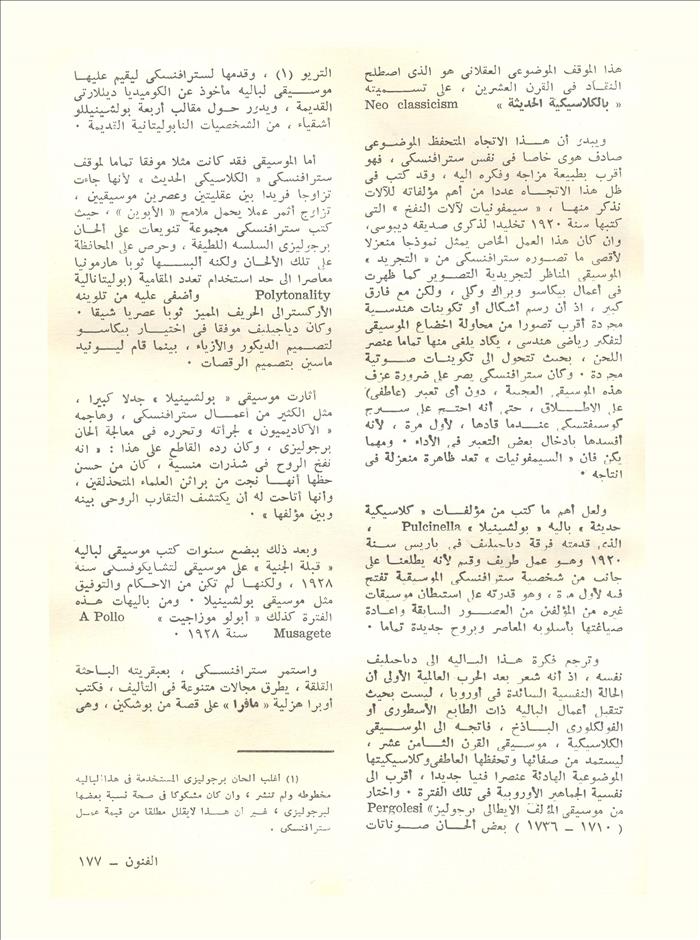 هذا الموقف الموضوعى العقلانى هو الذى اصطلح
النقاد فى القرن العشرين ، على تسميته
« بالكلاسيكية الحديثة » Neo classicism
ويبدو أن هذا الاتجاه المتحفظ الموضوعى
صادف هوى خاصا فى نفس سترافنسكى ، فهو
أقرب بطبيعة مزاجه وفكره اليه ، وقد كتب فى
ظل هذا الاتجاه عددا من أهم مؤلفاته للآلات
نذكر منها ، « سيمفونيات لآلات النفخ » التى
كتبها سنة ١٩٢٠ تخليدا لذكرى صديقه ديبوسى،
وان كان هذا العمل الخاص يمثل نموذجا منعزلا
لأقصى ما تصوره سترافنسكى من « التجريد »
الموسيقى المناظر لتجريدية التصوير كما ظهرت
فى أعمال بيكاسو وبراك وكلى ، ولكن مع فارق
كبير ، اذ أن رسم أشكال أو تكوينات هندسية
مجردة أقرب تصورا من محاولة اخضاع الموسيقى
لتفكير رياضى هندسى ، يكاد يلغى منها تماما عنصر
اللحن ، بحيث تتحول الى تكوينات صوتية
مجردة ٠ وكان سترافنسكى يصر على ضرورة عزف
هذه الموسيقى العجيبة ، دون أى تعبير (عاطفى)
على الاطلاق ، حتى أنه احتج على سرج
كوسيفتسكى عندما قادها ، لأول مرة ، لأنه
أفسدها بادخال بعض التعبير فى الأداء ٠ ومهما
يكن فان « السيمفونيات » تعد ظاهرة منعزلة فى
انتاجه ٠
ولعل أهم ما كتب من مؤلفات « كلاسيكية
حديثة » باليه « بولشينيلا » Pulcinella ،
الذى قدمته فرقة دياجيليف فى باريس سنة
١٩٢٠ وهو عمل طريف وقيم لأنه يطلعنا على
جانب من شخصية سترافنسكى الموسيقية تفتح
فيه لأول مرة ، وهو قدرته على استبطان موسيقات
غيره من المؤلفين من العصور السابقة واعادة
صياغتها بأسلوبه المعاصر وبروح جديدة تماما ٠
وترجع فكرة هذا الباليه الى دياجيليف
نفسه ، اذ أنه شعر بعد الحرب العالمية الأولى أن
الحالة النفسية السائدة فى أوروبا ، ليست بحيث
تتقبل أعمال الباليه ذات الطابع الأسطورى أو
الفولكلورى الباذخ ، فاتجه الى الموسيقى
الكلاسيكية ، موسيقى القرن الثامن عشر ،
ليستمد من صفائها وتحفظها العاطفى وكلاسيكيتها
الموضوعية الهادئة عنصرا فنيا جديدا ، أقرب الى
نفسية الجماهير الأوروبية فى تلك الفترة ٠ واختار
من موسيقى المؤلف الايطالى برجوليز» Pergolesi
( ١٧١٠ – ١٧٣٦ ) بعض ألحان صوناتات
التريو (١) ، وقدمها لسترافنسكى ليقيم عليها
موسيقى لباليه مأخوذ عن الكوميديا ديللارتى
القديمة ، ويدور حول مقالب أربعة بولشينيللو
أشقياء ، من الشخصيات النابوليتانية القديمة ٠
أما الموسيقى فقد كانت مثلا موفقا تماما لموقف
سترافنسكى « الكلاسيكى الحديث » لأنها جاءت
تزاوجا فريدا بين عقليتين وعصرين موسيقيين ،
تزاوج أثمر عملا يحمل ملامح « الأبوين » ، حيث
كتب سترافنسكى مجموعة تنويعات على ألحان
برجوليزى السلسه اللطيفة ، وحرص على المحافظة
على تلك الألحان ولكنه ألبسها ثوبا هارمونيا
معاصرا الى حد استخدام تعدد المقامية (بوليتانالية
Polytonality وأضفى عليه من تلوينه
الأركسترالى الحريف المميز ثوبا عصريا شيقا ٠
وكان دياجيليف موفقا فى اختيار بيكاسو
لتصميم الديكور والأزياء ، بينما قام ليونيد
ماسين بتصميم الرقصات ٠
أثارت موسيقى « بولشينيلا » جدلا كبيرا ،
مثل الكثير من أعمال سترافنسكى ، وهاجمه
« الأكاديميون » لجرأته وتحرره فى معالجة ألحان
برجوليزى ، وكان رده القاطع على هذا : « انه
نفخ الروح فى شذرات منسية ، كان من حسن
حظها أنها نجت من براثن العلماء المتحذلقين ،
وأنها أتاحت له أن يكتشف التقارب الروحى بينه
وبين مؤلفها » ٠
وبعد ذلك ببضع سنوات كتب موسيقى لباليه
« قبلة الجنية » على موسيقى لتشايكوفسكى سنه
١٩٢٨ ، ولكنها لم تكن من الاحكام والتوفيق
مثل موسيقى بولشينيلا ٠ ومن باليهات هذه
الفترة كذلك « أبولو موزاجيت » A Pollo
Musagete سنة ١٩٢٨ ٠
واستمر سترافنسكى ، بعبقريته الباحثة
القلقة ، يطرق مجالات متنوعة فى التأليف ، فكتب
أوبرا هزلية « مافرا » على قصة من بوشكين ، وهى
(١) أغلب ألحان برجوليزى المستخدمة فى هذا الباليه
مخطوطه ولم تنشر ، وان كان مشكوكا فى صحة نسبة بعضها
لبرجوليزى ، غير أن هذا لايقلل مطلقا من قيمة عمل
سترافنسكى ٠
الفنون – ١٧٧